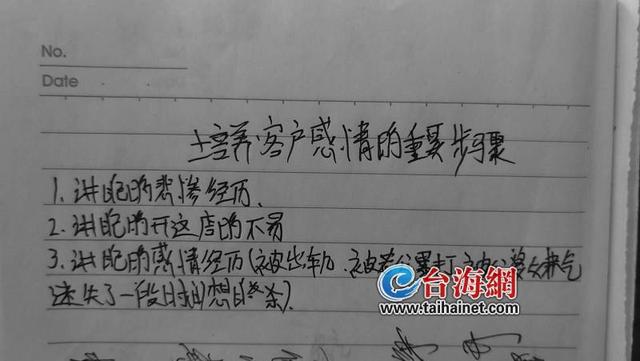 No.
Date
培养客户感情的重要步骤
1. 讲自己的悲惨经历.
2. 讲自己的开这店的不易
3. 讲自己的感情经历(被出轨)、被老公暴打 被公婆气
迷失了一段时间(想自杀).
台海網
www.taihainet.com